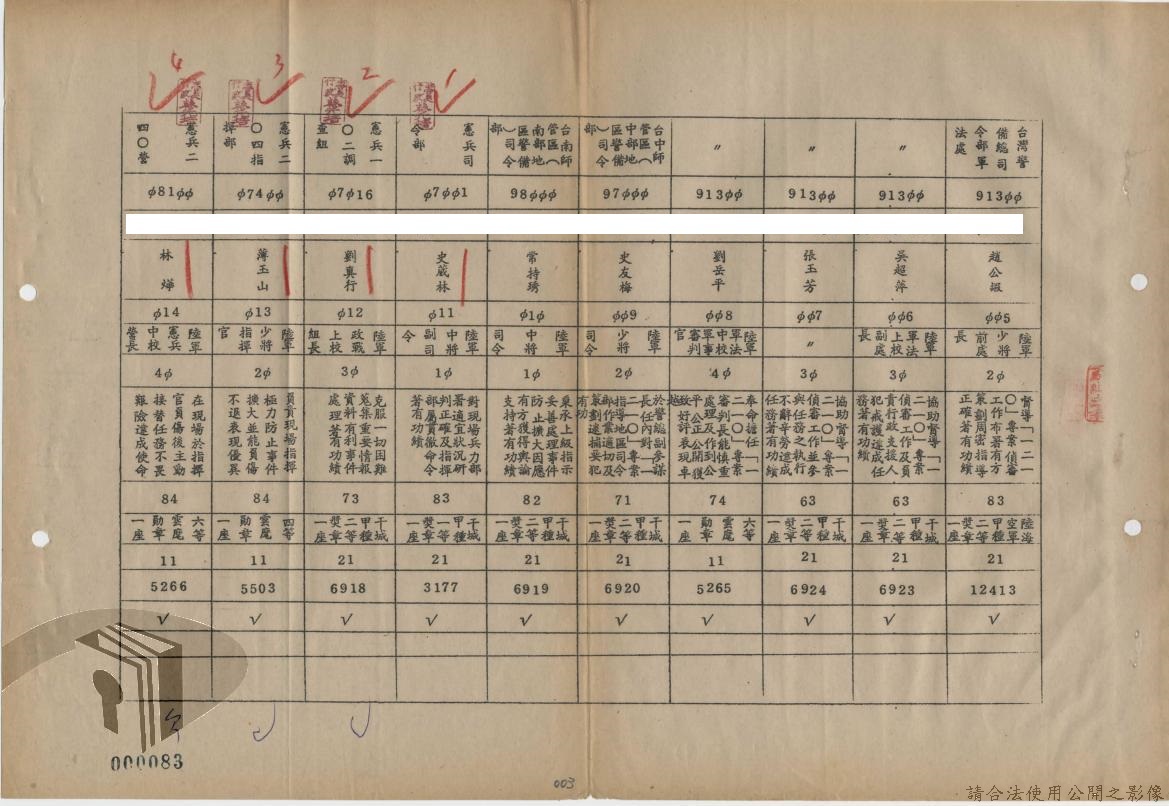 台灣警
備總司
令部軍
法處
913φφ
趙公嘏
φφ5
陸軍
少將
前處
長
2φ
督導「一二一
〇」專案偵審
工作布署有方
策劃周密指導
正確著有功績
83
陸海
空軍
甲種
二等
獎章
一座
21
12413
√
〃
913φφ
吳超萍
φφ6
陸軍
軍法
上校
副處
長
3φ
協助督導「一
二一〇」專案
偵審工作及負
責行政支援人
犯戒護達成任
務著有功績
63
干城
甲種
二等
獎章
一座
21
6923
√
〃
913φφ
張玉芳
φφ7
〃
3φ
協助督導「一
二一〇」專案
偵審工作並參
與任務之執行
不辭辛勞達成
任務著有功績
63
干城
甲種
二等
獎章
一座
21
6924
√
〃
913φφ
劉岳平
φφ8
陸軍
軍法
中校
軍事
審判
官
4φ
奉命擔任「一
二一〇」專案
審判長能慎重
處理及作到公
平公正公開獲
致好評表現卓
越
74
六等
雲麾
勛章
一座
11
5265
√
台中師
管區(
中部地
區警備
)司令
部
97φφφ
史友梅
φφ9
陸軍
少將
司令
2φ
於警總副參謀
長任內對「一
二一〇」專案
指導地區司令
部作業適切及
策劃逮捕要犯
有功
71
干城
甲種
二等
獎章
一座
21
6920
√
台南師
管區(
南部地
區警備
)司令
部
98φφφ
常持琇
φ1φ
陸軍
中將
司令
1φ
秉承上級指示
妥善處理事件
防止擴大因應
有方獲得輿論
支持著有功績
82
干城
甲種
二等
獎章
一座
21
6919
√
1
憲兵司
令部
φ7φφ1
史葳林
φ11
陸軍
中將
副司
令
1φ
對現場兵力部
署適宜狀況研
判正確及指揮
部屬貫徹命令
著有功績
83
干城
甲種
一等
獎章
一座
21
3177
√
2
憲兵一
〇二調
查組
φ7φ16
劉真行
φ12
陸軍
政戰
上校
組長
3φ
克服一切困難
蒐集重要情報
資料有利事件
處理著有功績
73
干城
甲種
二等
獎章
一座
21
6918
√
3
憲兵二
〇四指
揮部
φ74φφ
薄玉山
φ13
陸軍
少將
指揮
官
2φ
負責現場指揮
極力防止事件
擴大並能負傷
不退表現優異
84
四等
雲麾
勛章
一座
11
5503
√
4
憲兵二
四〇營
φ81φφ
林燁
φ14
陸軍
憲兵
中校
營長
4φ
在現場於指揮
官負傷後主動
接替任務不畏
艱險達成使命
84
六等
雲麾
勛章
一座
11
5266
√
000083
003
請合法使用公開之影像